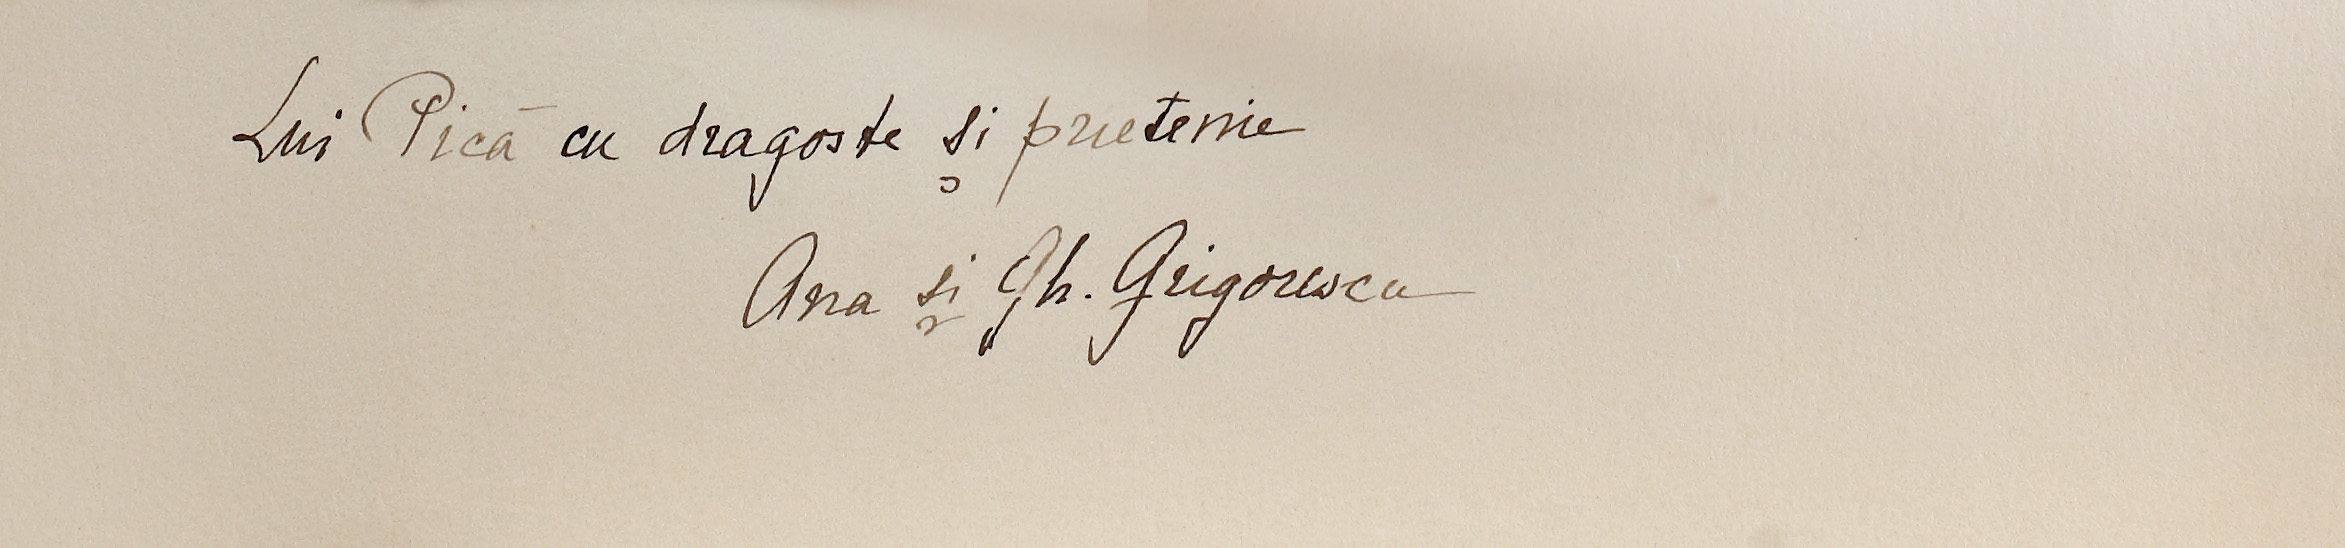 Lui Pică cu dragoste și prietenie
Ana și Gh. Grigorescu